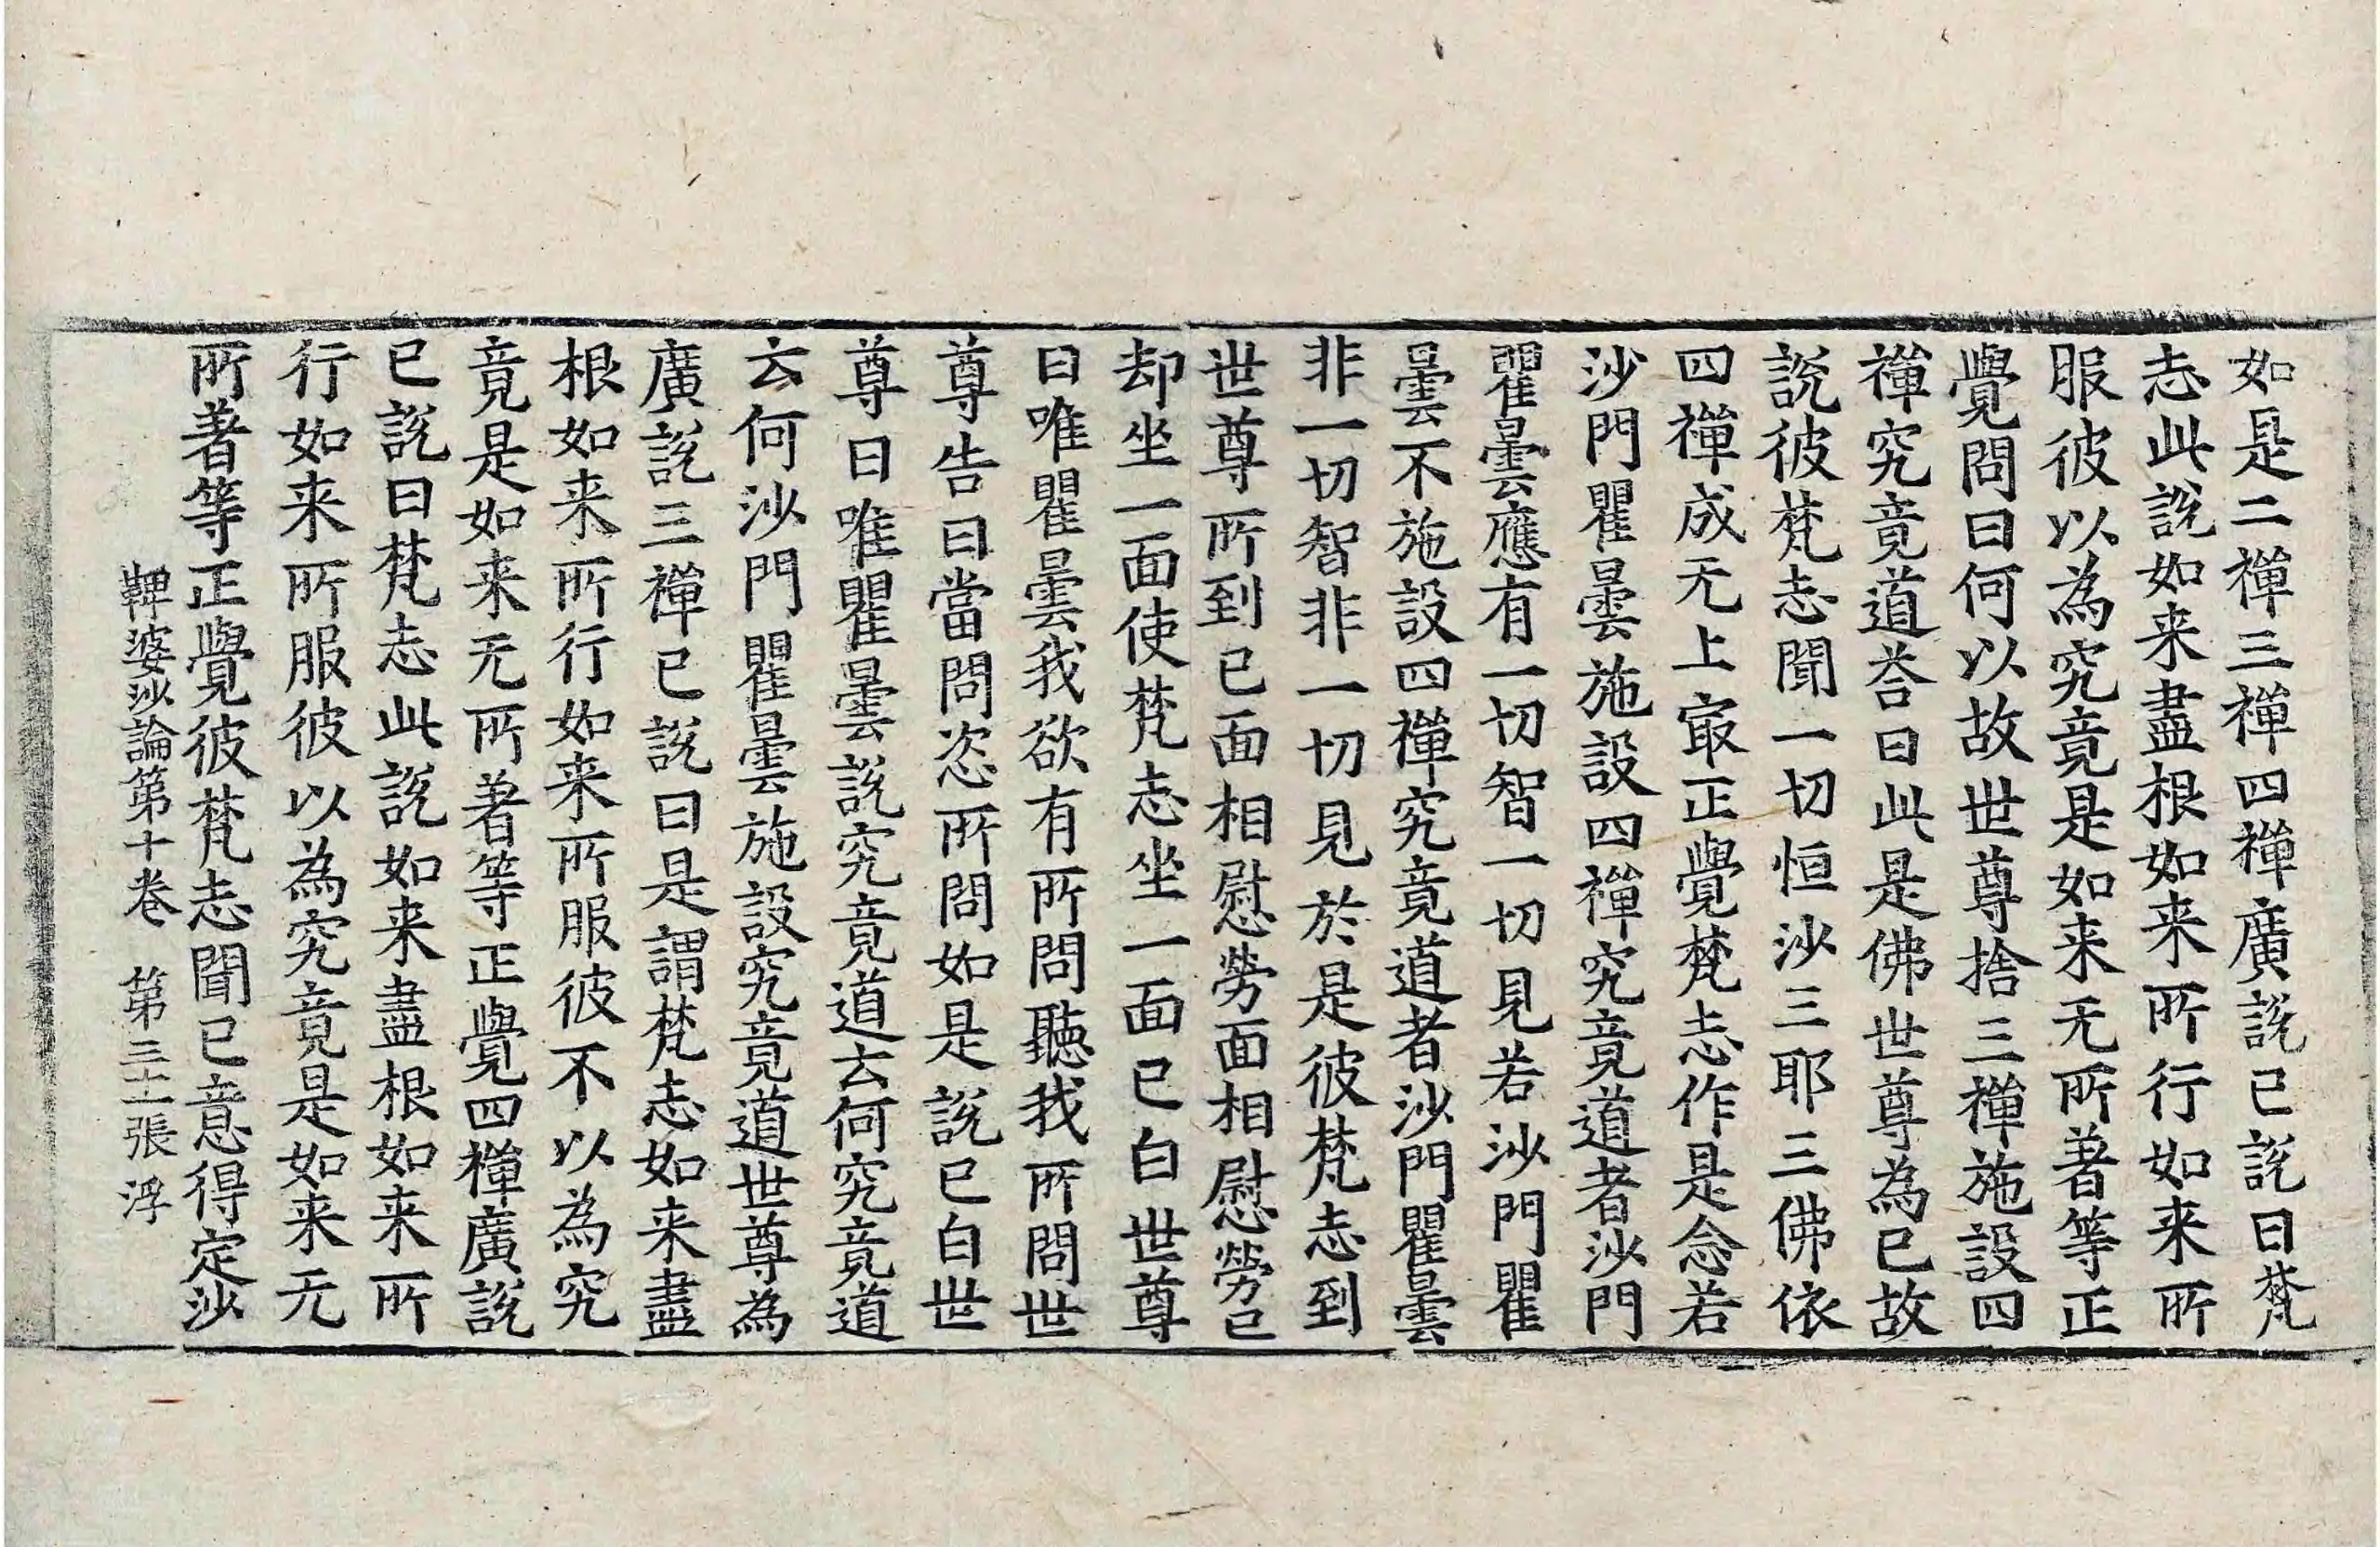 如是二禪三禪四禪廣説已説曰梵
志此説如来盡根如来所行如来所
服彼以為究竟是如来无所著等正
覺問曰何以故世尊捨三禪施設四
禪究竟道荅曰此是佛世尊為已故
説彼梵志聞一切恒沙三耶三佛依
四禪成无上㝡正覺梵志作是念若
沙門瞿曇施設四禪究竟道者沙門
瞿曇應有一切智一切見若沙門瞿
曇不施設四禪究竟道者沙門瞿曇
非一切智非一切見於是彼梵志到
世尊所到已面相慰勞面相慰勞已
却坐一面使梵志坐一面已白世尊
曰唯瞿曇我欲有所問聽我所問世
尊告曰當問恣所問如是説已白世
尊曰唯瞿曇説究竟道云何究竟道
云何沙門瞿曇施設究竟道世尊為
廣説三禪已説曰是謂梵志如来盡
根如来所行如来所服彼不以為究
竟是如来无所著等正覺四禪廣説
已説曰梵志此説如来盡根如来所
行如来所服彼以為究竟是如来无
所著等正覺彼梵志聞已意得定沙
鞞婆沙論第十卷 第三十二張 浮